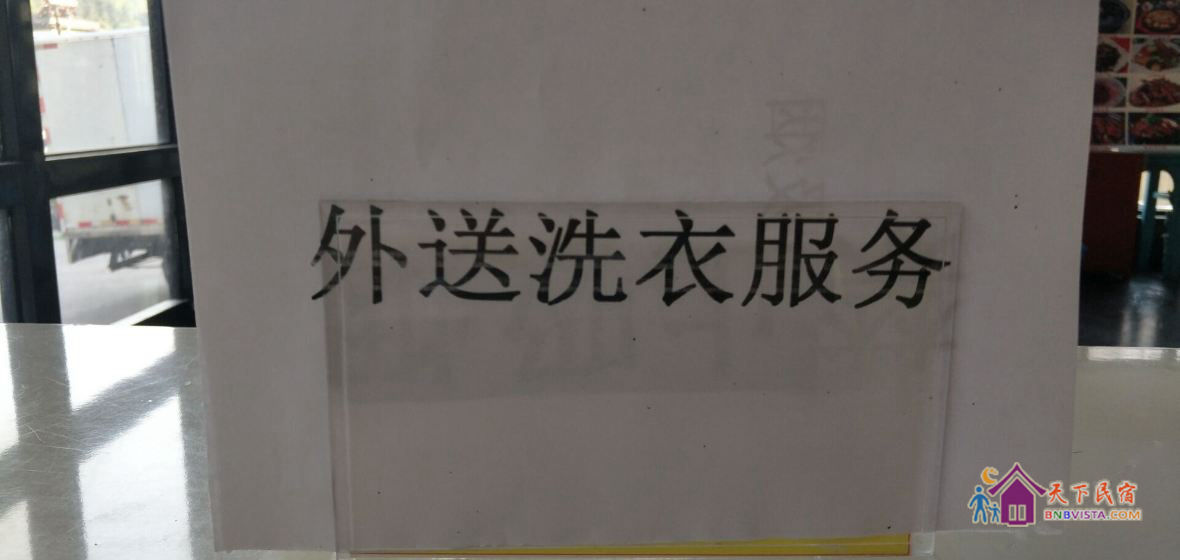 外送洗衣服务
天下民宿
BNBVISTA.COM